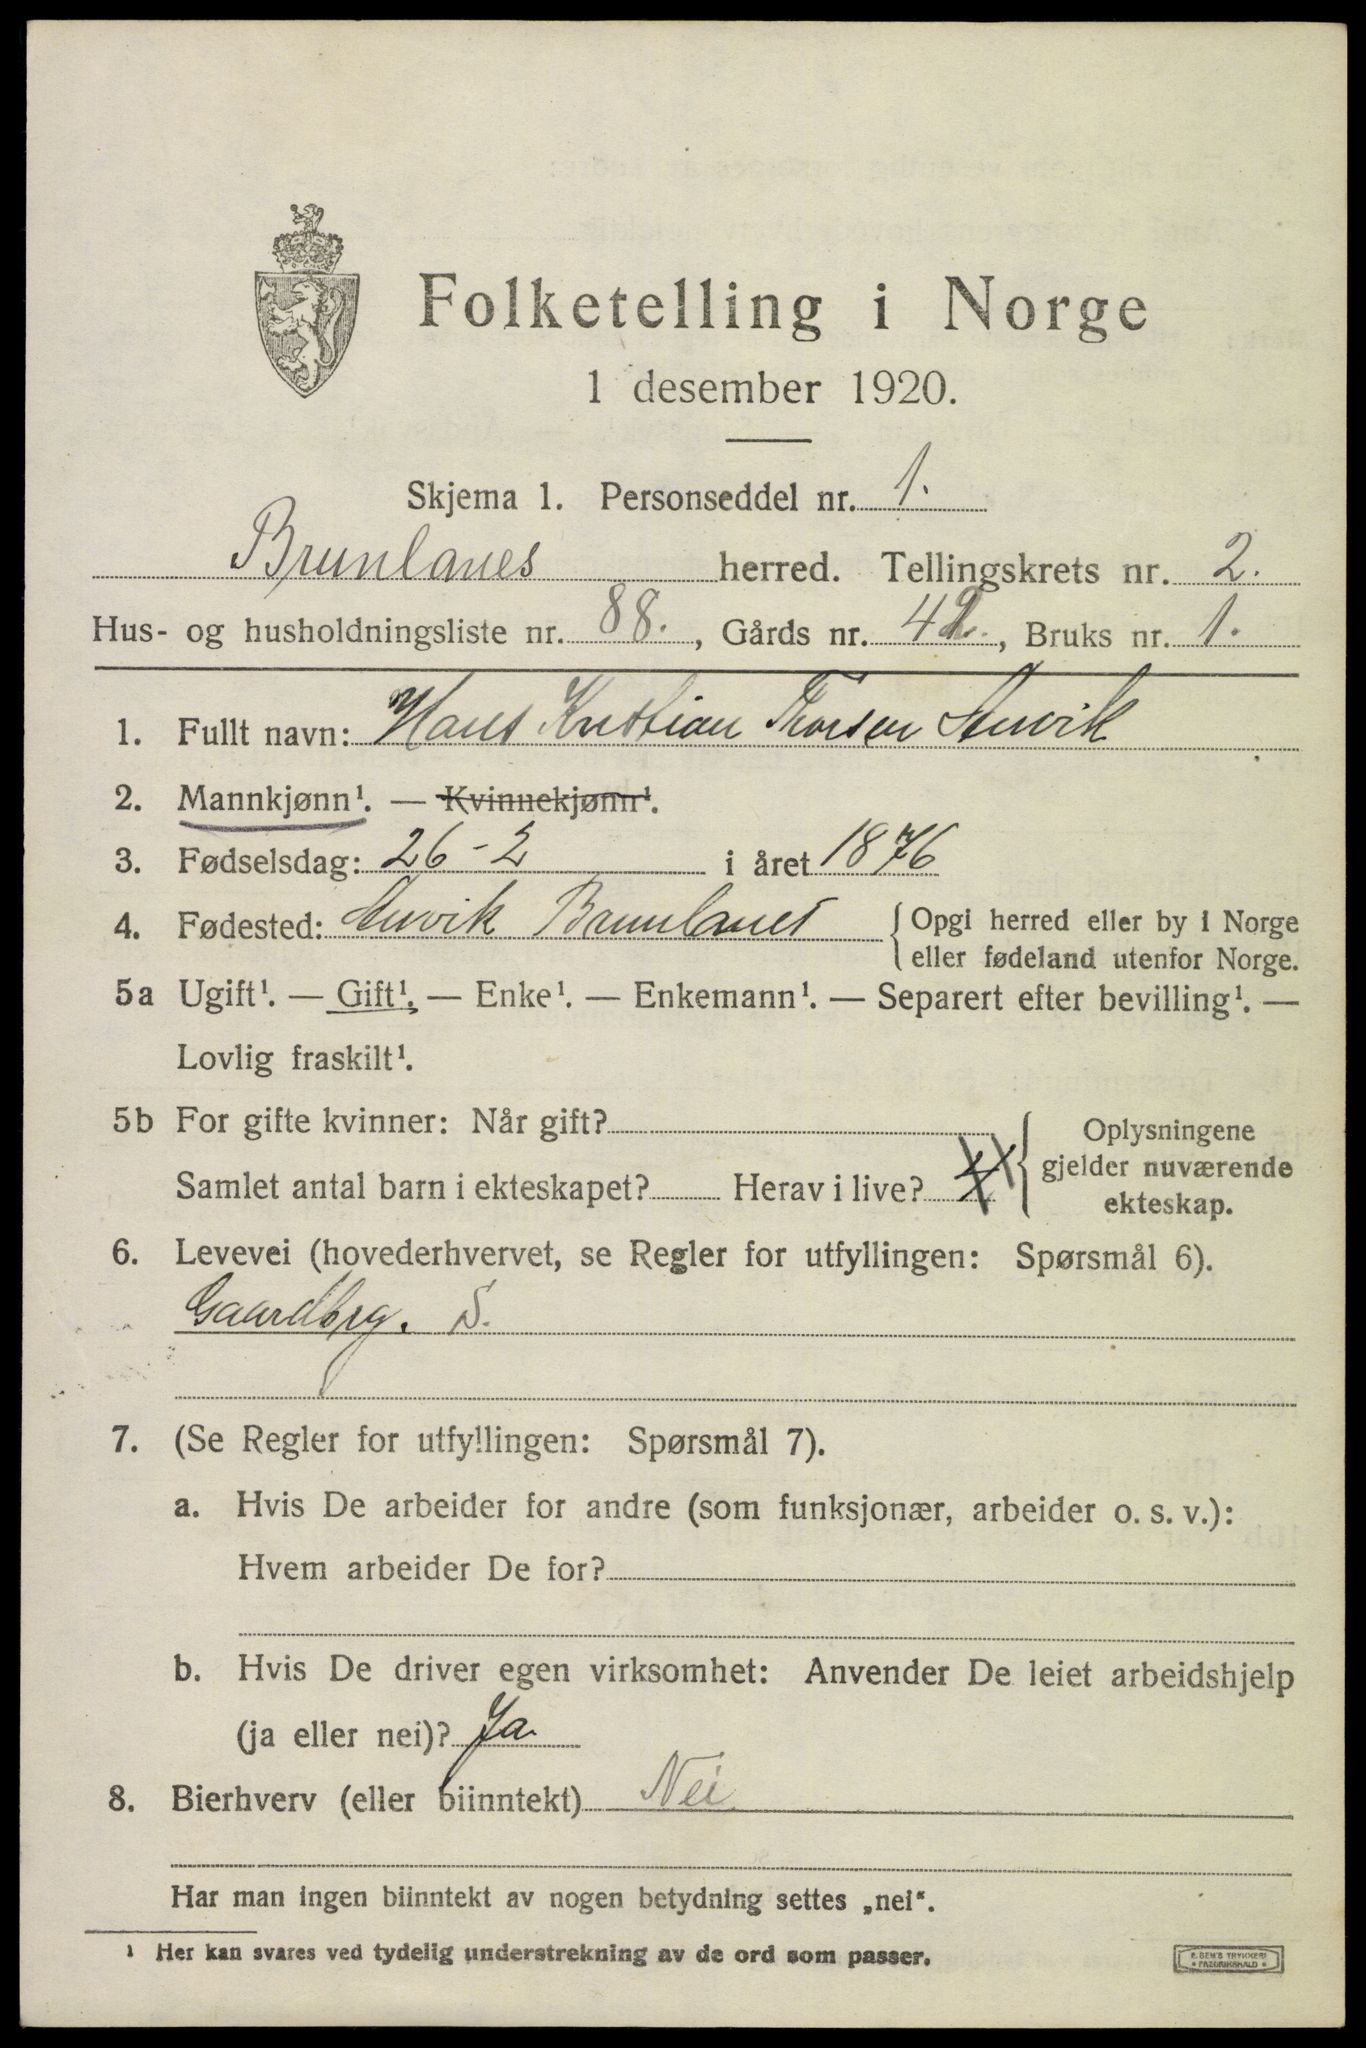 Folketelling i Norge
1 desember 1920.
Skjema 1. Personseddel nr. 1.
Brunlanes herred. Tellingskrets nr. 2.
Hus- og husholdningsliste nr. 88., Gårds nr. 42., Bruks nr. 1.
1. Fullt navn: Hans Kristian Thorsen Anvik
2. Mannkjønn¹. — Kvinnekjønn¹.
3. Fødselsdag: 26-2 i året 1876
4. Fødested: Anvik Brunlanes { Opgi herred eller by i Norge
eller fødeland utenfor Norge.
5a Ugift¹. — Gift¹. — Enke¹. — Enkemann¹. — Separert efter bevilling¹. —
Lovlig fraskilt¹.
5b For gifte kvinner: Når gift?
Samlet antal barn i ekteskapet? Herav i live?
{ Oplysningene
gjelder nuværende
ekteskap.
6. Levevei (hovederhvervet, se Regler for utfyllingen: Spørsmål 6).
Gaardbrg. S.
7. (Se Regler for utfyllingen: Spørsmål 7).
a. Hvis De arbeider for andre (som funksjonær, arbeider o. s. v.):
Hvem arbeider De for?
b. Hvis De driver egen virksomhet: Anvender De leiet arbeidshjelp
(ja eller nei)? Ja
8. Bierhverv (eller biinntekt) Nei
Har man ingen biinntekt av nogen betydning settes „nei“.
¹ Her kan svares ved tydelig understrekning av de ord som passer.
E. SEM'S TRYKKERI
* FREDRIKSHALD *